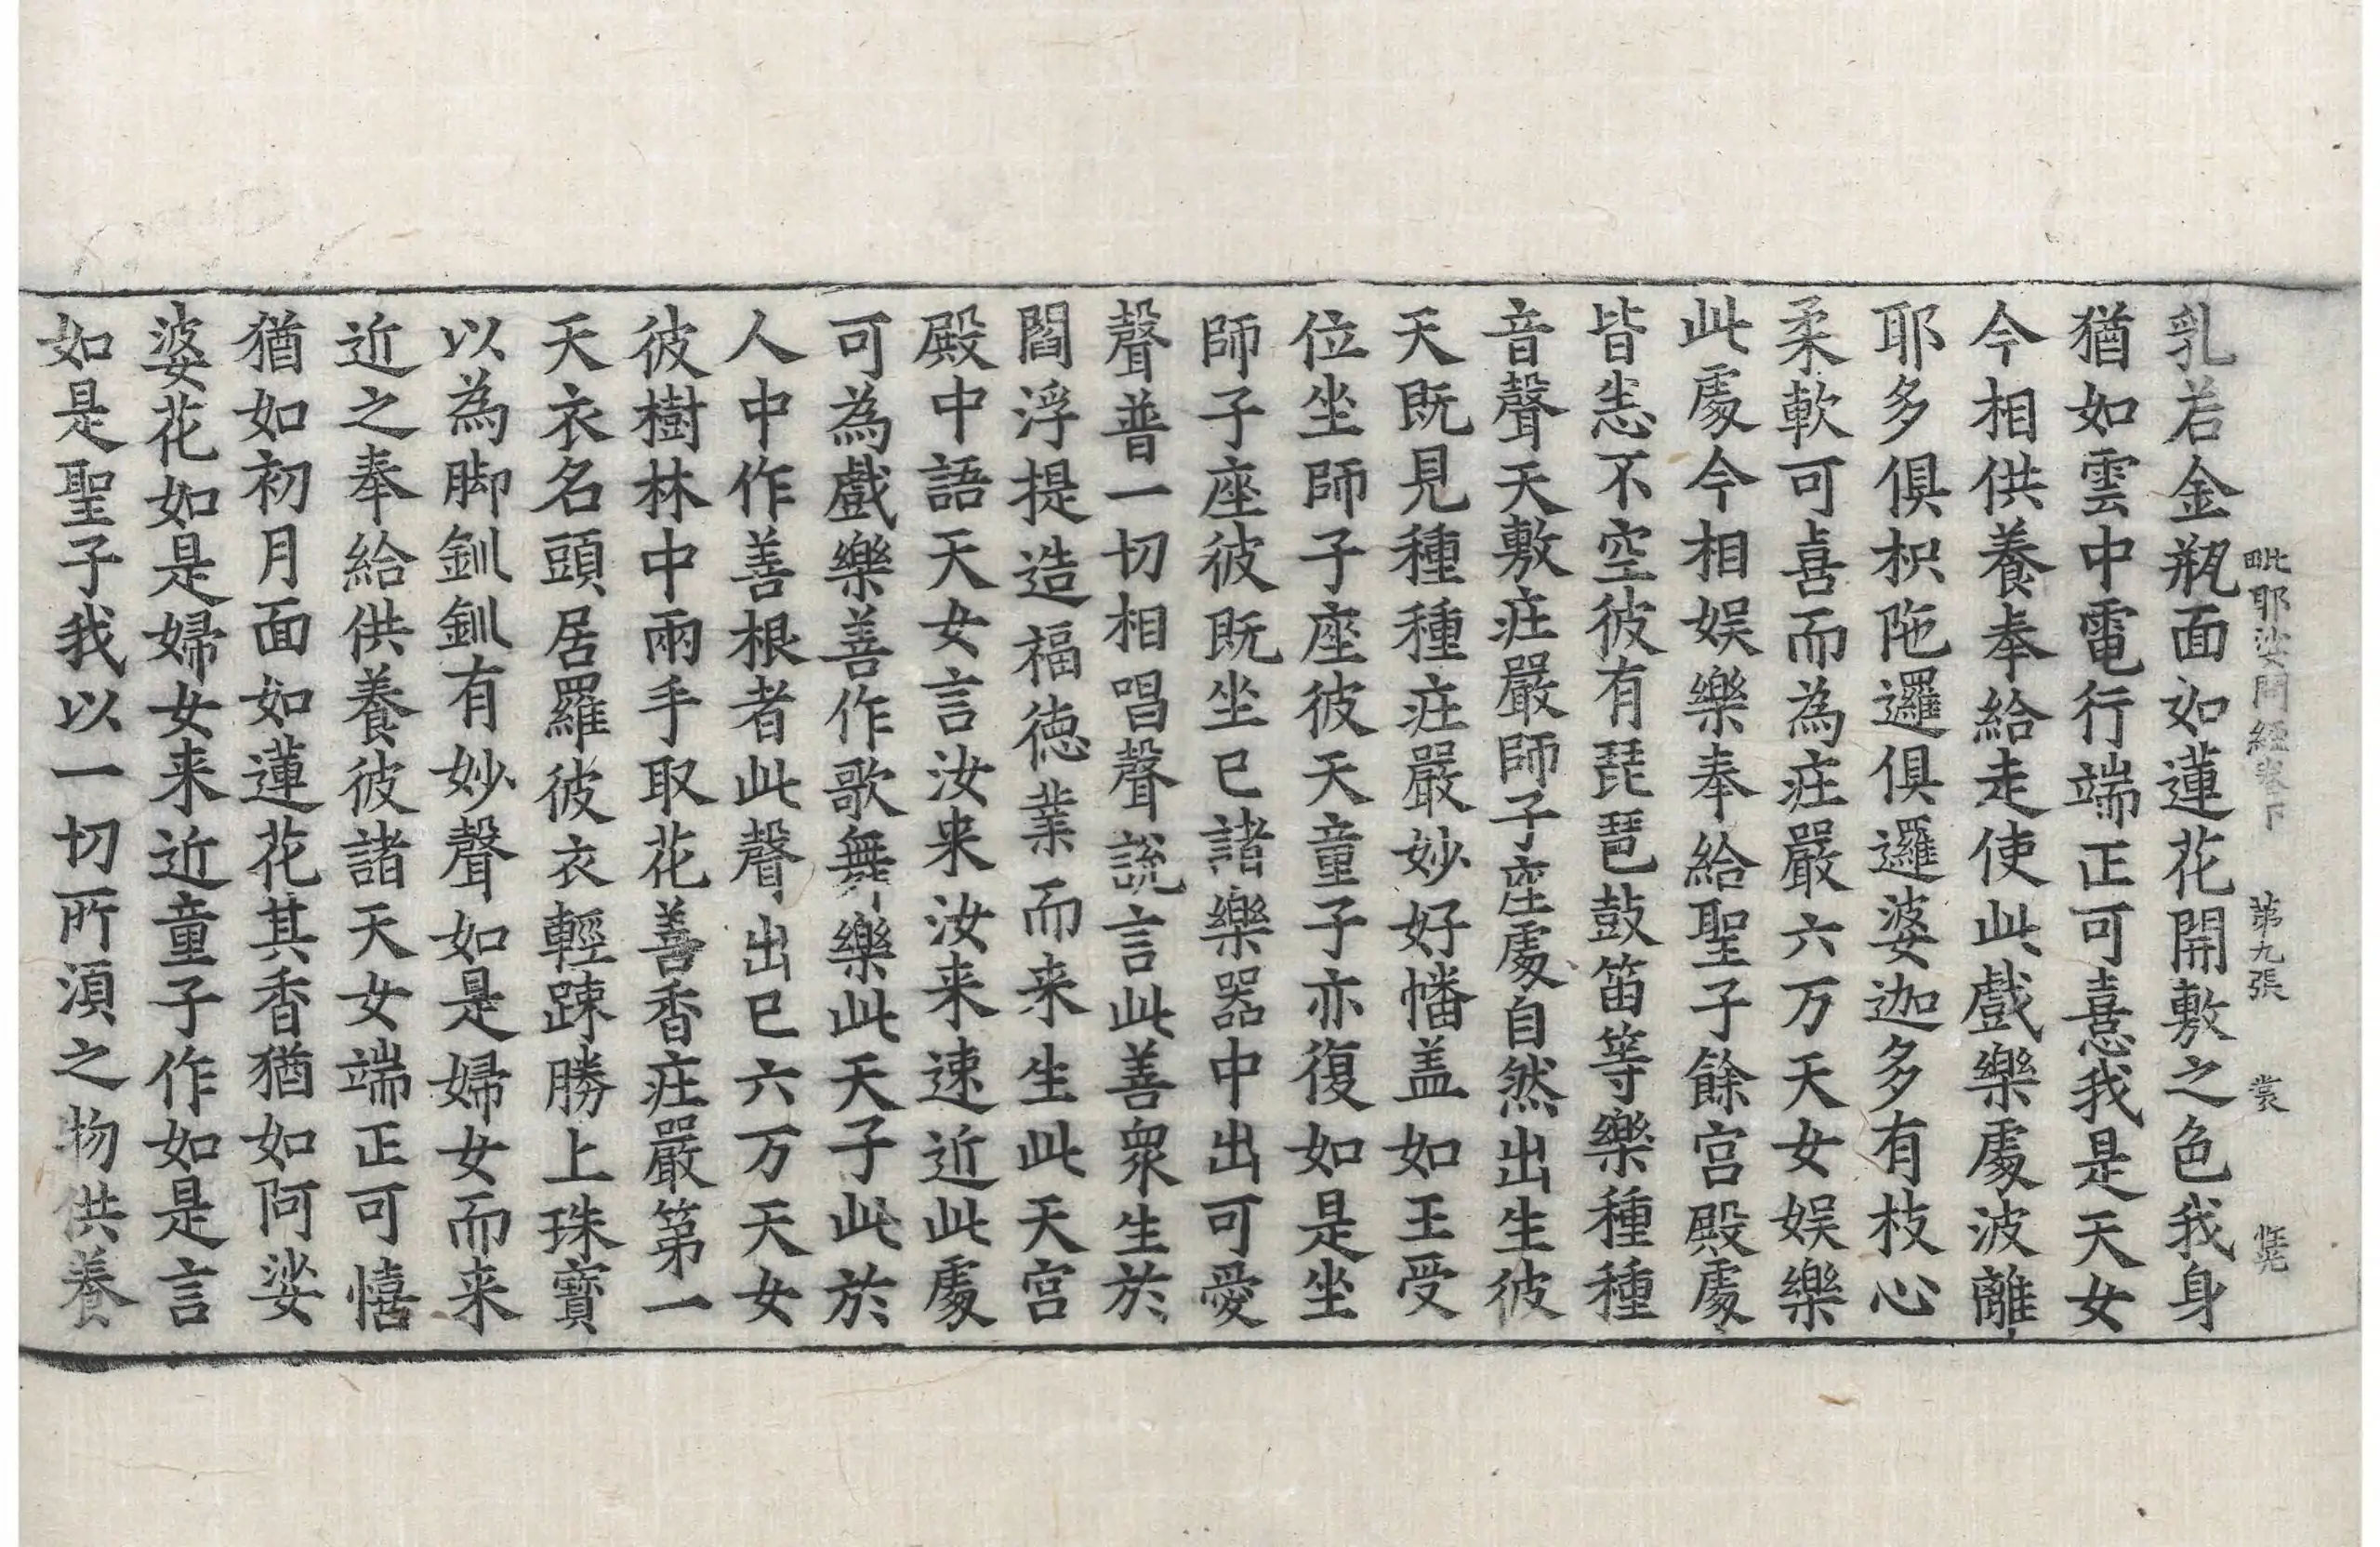 毗耶娑問経卷下 第九張 裳
乳若金瓶面如蓮花開敷之色我身
猶如雲中電行端正可憙我是天女
今相供養奉給走使此戲樂處波離
耶多俱枳陁邏俱邏婆迦多有枝心
柔軟可喜而為疘嚴六万天女娱樂
此處今相娱樂奉給聖子餘宫殿處
皆恙不空彼有琵琶鼓笛等樂種種
音聲天敷疘嚴師子座處自然出生彼
天既見種種疘嚴妙好幡盖如王受
位坐師子座彼天童子亦復如是坐
師子座彼既坐已諸樂器中出可愛
聲普一切相唱聲說言此善衆生於
閻浮提造福德業而来生此天宫
殿中語天女言汝来汝来速近此處
可為戲樂善作歌舞樂此天子此於
人中作善根者此聲出已六万天女
彼樹林中兩手取花善香疘嚴第一
天衣名頭居羅彼衣輕踈勝上珠寶
以為脚釧釧有妙聲如是婦女而来
近之奉給供養彼諸天女端正可憘
猶如初月面如蓮花其香猶如阿娑
婆花如是婦女来近童子作如是言
如是聖子我以一切所湏之物供養